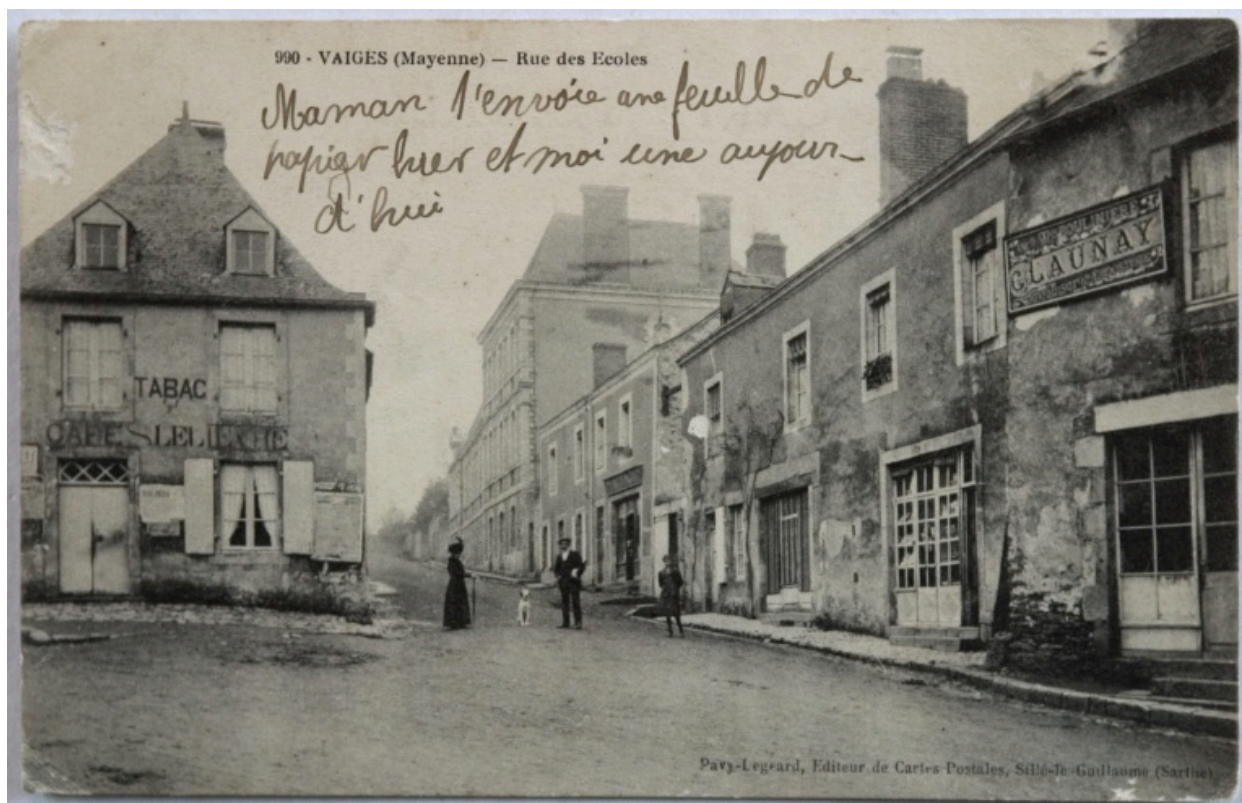 990 - VAIGES (Mayenne) — Rue des Ecoles
Maman t'envoie une feuille de
papier hier et moi une aujour-
d'hui
TABAC
CAFE
C. LAUNAY
Pavy-Legeard, Editeur de Cartes Postales, Sillé-le-Guillaume (Sarthe)